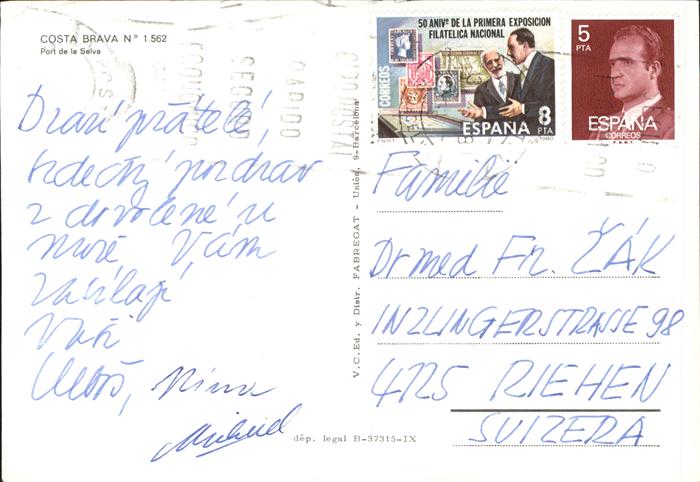 COSTA BRAVA Nº 1.562
Port de la Selva
Drazí přátelé,
srdečný pozdrav
z dovolené u
moře Vám
zasílají
Vaši
Nina
Michael
V.C. Ed. y Distr. FABREGAT - Unión, 9-Barcelona
dép. legal B-37315-IX
50 ANIVº DE LA PRIMERA EXPOSICION
FILATELICA NACIONAL
CORREOS
ESPAÑA 8 PTA
F.N.M.T.
1980
5
PTA
ESPAÑA
CORREOS
F.N.M.T.
RAPIDO
SEGURO
ECONOMICO
Familie
Dr med Fr. ŽÁK
INZLINGERSTRASSE 98
4125 RIEHEN
SUIZERA